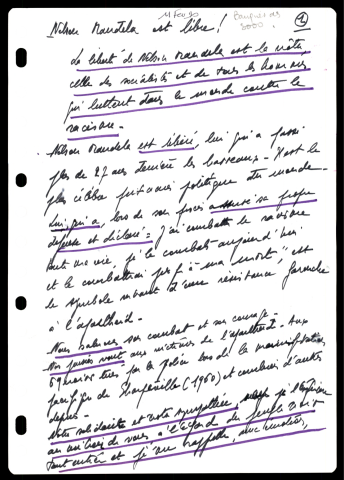 11 Fev 90
Banquier des 3000
1
Nelson Mandela est libre !
La liberté de Nelson Mandela est la nôtre,
celle des socialistes et de tous les hommes
qui luttent dans le monde contre le
racisme.
Nelson Mandela est libéré, lui qui a passé
plus de 27 ans derrière les barreaux. - C'est le
plus célèbre prisonnier politique du monde.
Lui qui a, lors de son procès assuré sa propre
défense et déclaré : J'ai combattu le racisme
toute ma vie, je le combats aujourd'hui
et le combattrai jusqu'à ma mort", est
le symbole vivant d'une résistance farouche
à l'apartheid.
Nous saluons son combat et son courage.
Nos pensées vont aux victimes de l'apartheid. Aux
69 noirs tués par la police lors de la manifestation
pacifique de Sharpeville (1960) et combien d'autres
depuis.
Notre solidarité et notre sympathie, je l'exprime
au nom de vous à l'égard du peuple noir
tout entier et je me rappelle, avec émotion,